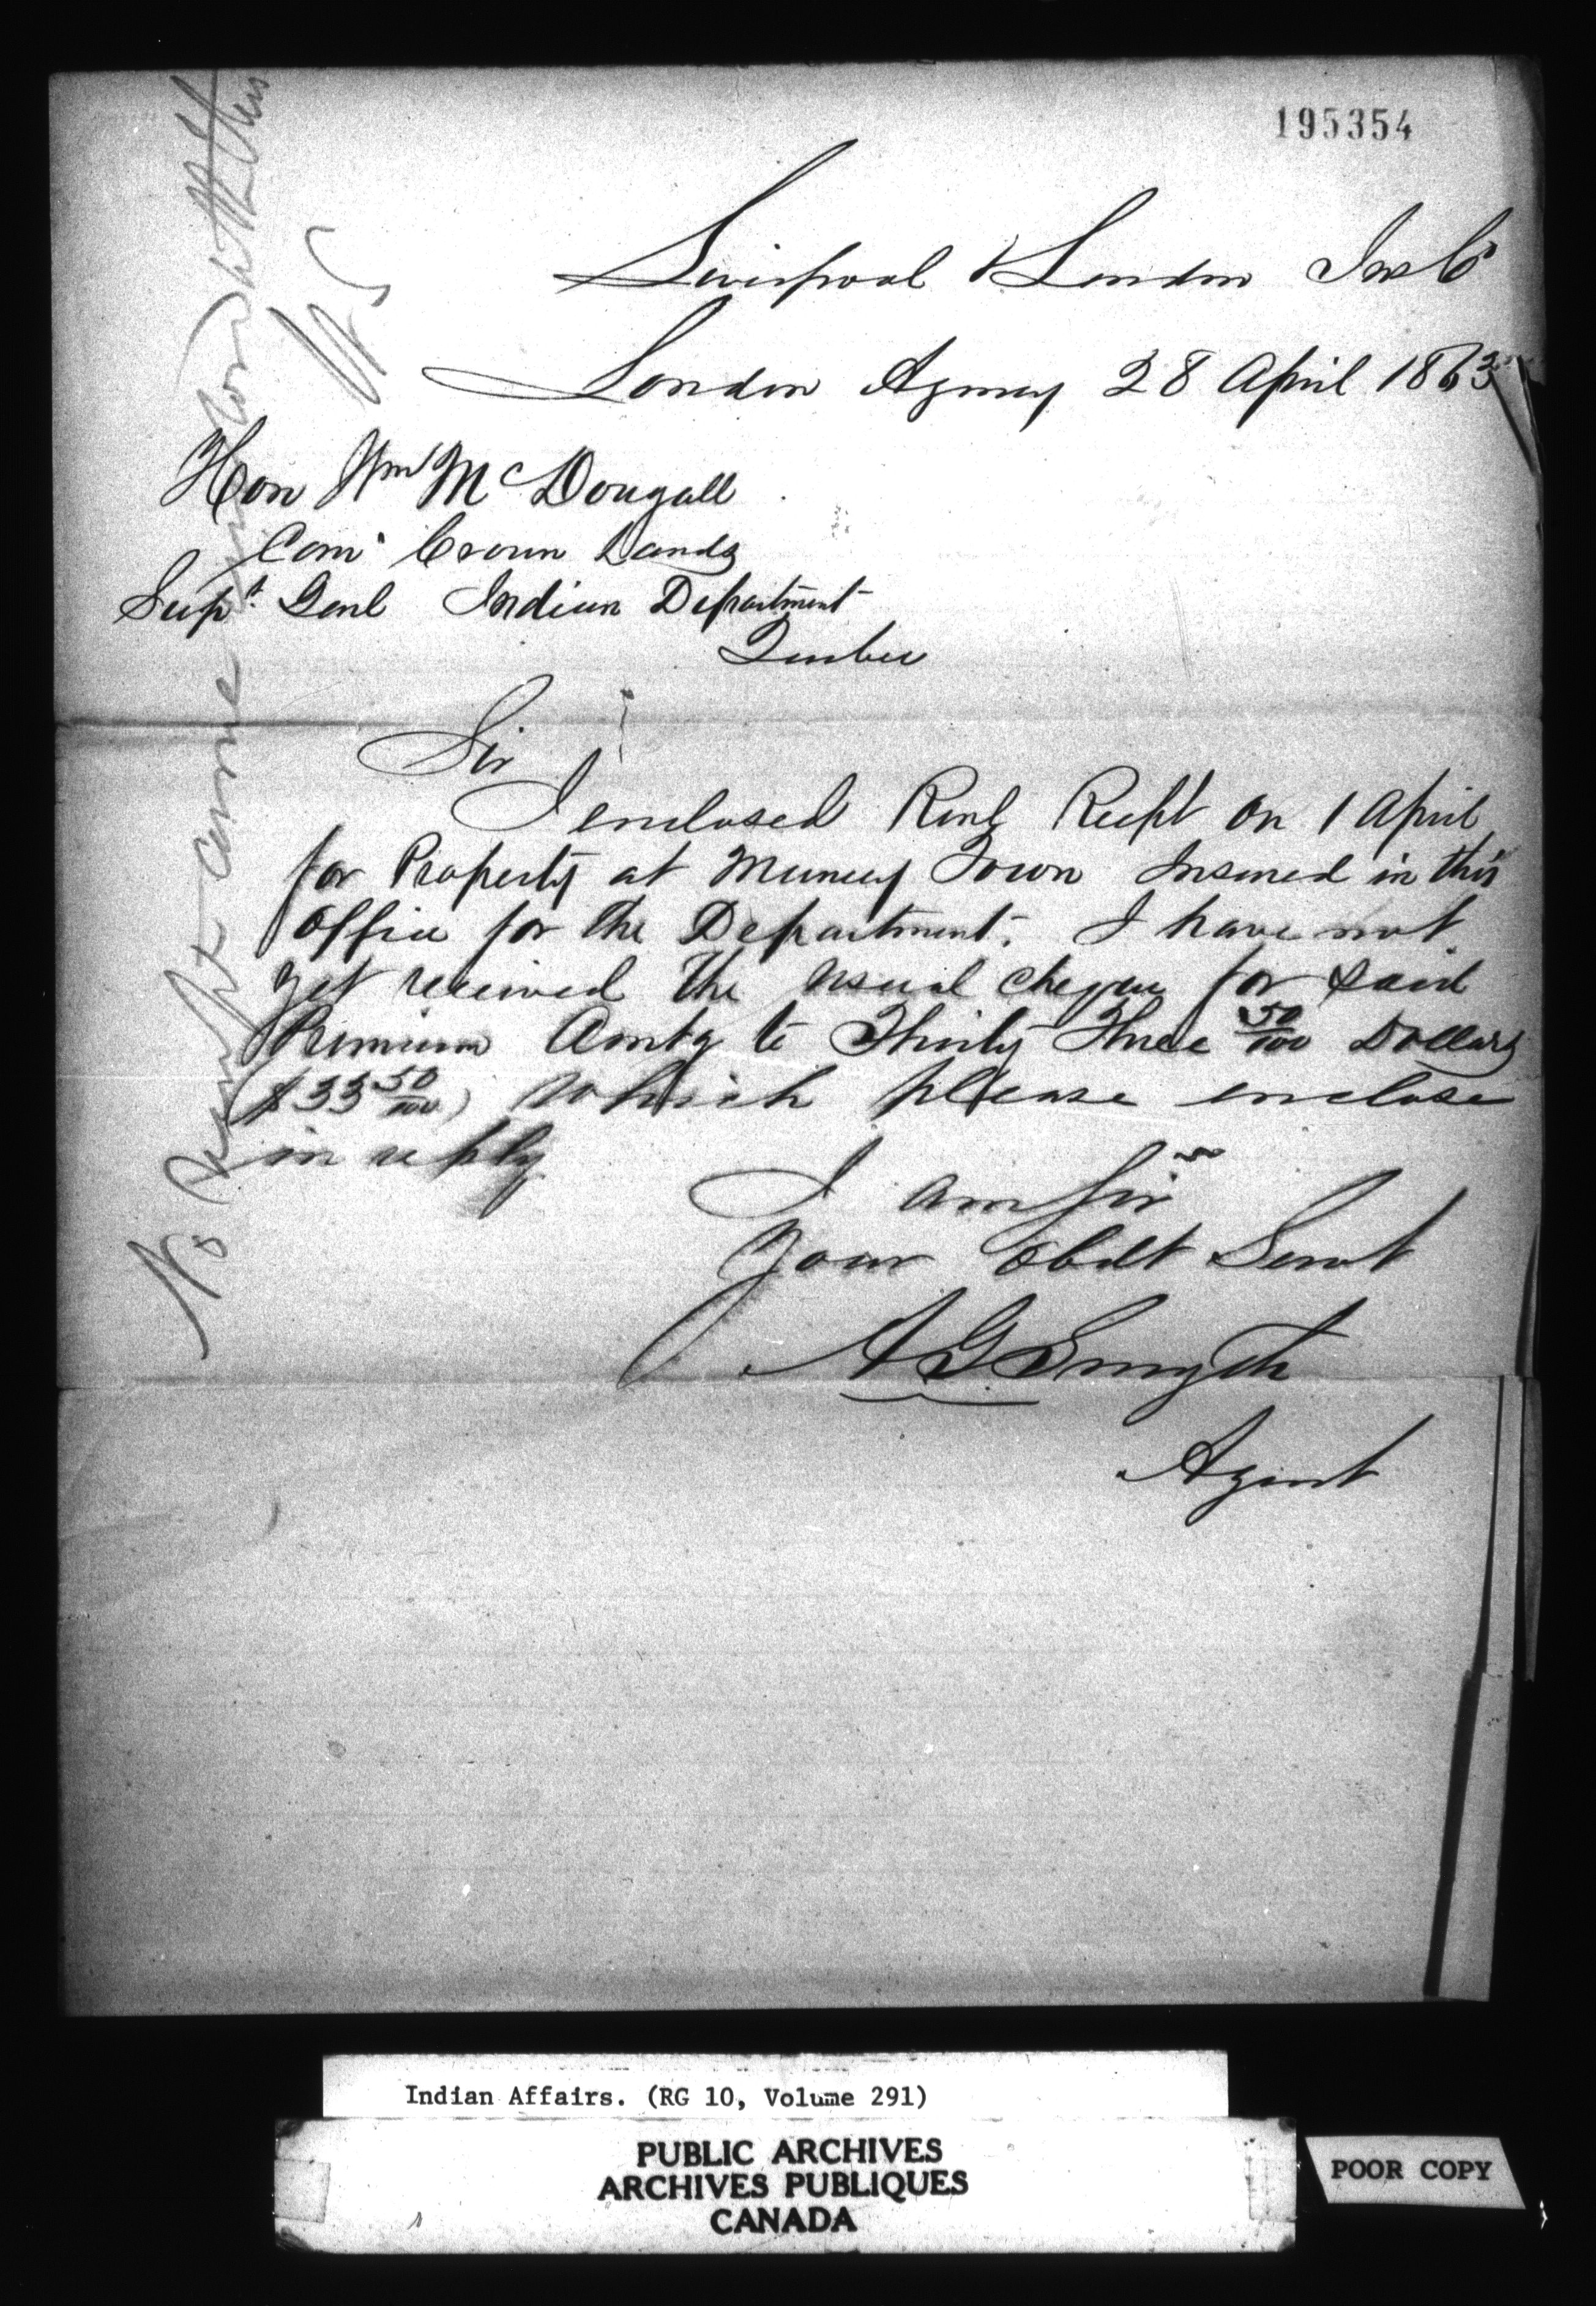 195354
Liverpool & London Ins Co
London Agency 28 April 1863
Hon Wm McDougall
Com. Crown Lands
Supt. Genl Indian Department
Quebec
Sir
I enclosed Renl Recpt on 1 April
for Property at Muncey Town Insured in this
Office for the Department. I have not
yet received the usual cheque for said
Premium Amtg to Thirty Three 50/100 Dollars
($33 50/100) which please enclose
in reply
I am Sir
Your Obdt Servt
A G Smyth
Agent
No receipt came
Indian Affairs. (RG 10, Volume 291)
PUBLIC ARCHIVES
ARCHIVES PUBLIQUES
CANADA
POOR COPY